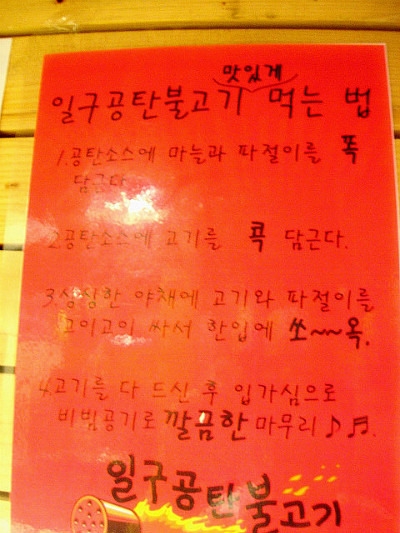 맛있게
일구공탄불고기 먹는 법
1.공탄소스에 마늘과 파절이를 폭
담근다.
2.공탄소스에 고기를 콕 담근다.
3.싱싱한 야채에 고기와 파절이를
고이고이 싸서 한입에 쏘~~옥.
4.고기를 다 드신 후 입가심으로
비빔공기로 깔끔한 마무리♪♬.
일구공탄불고기